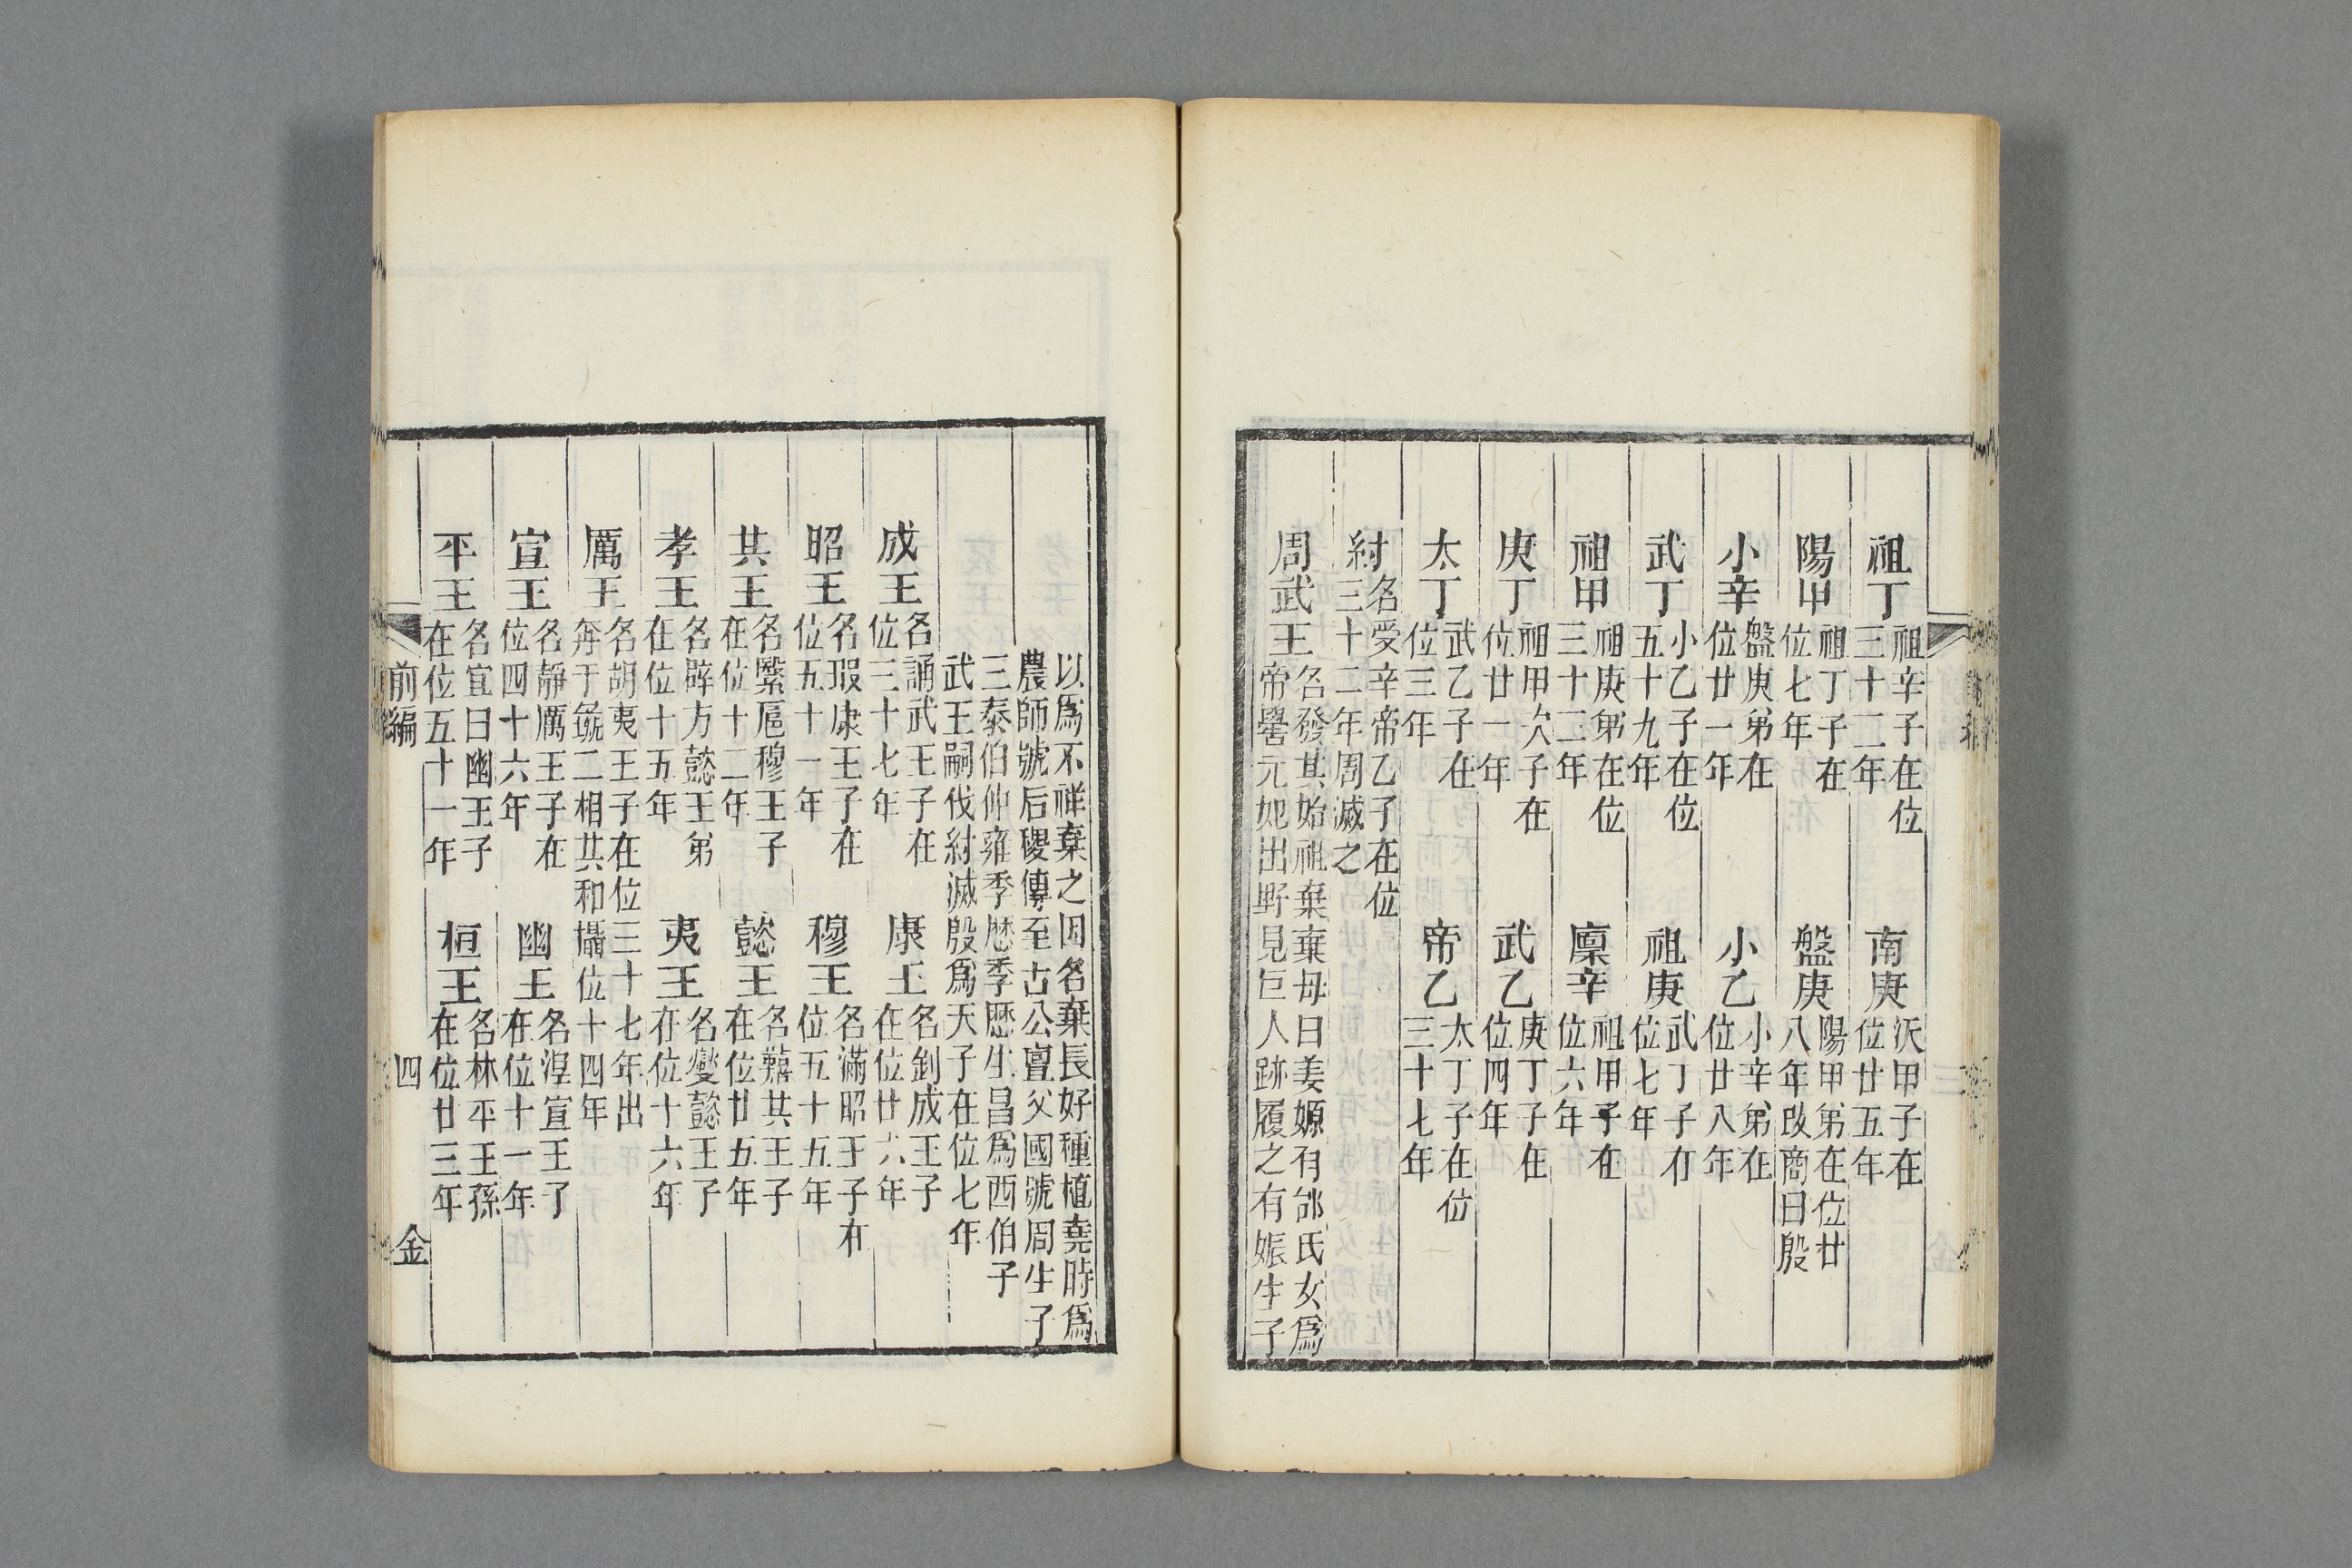 祖丁祖辛子在位三十二年　南庚沃甲子在位廿五年
陽甲祖丁子在位七年　盤庚陽甲弟在位廿八年改商曰殷
小辛盤庚弟在位廿一年　小乙小辛弟在位廿八年
武丁小乙子在位五十九年　祖庚武丁子在位七年
祖甲祖庚弟在位三十三年　廩辛祖甲子在位六年
庚丁祖甲次子在位廿一年　武乙庚丁子在位四年
太丁武乙子在位三年　帝乙太丁子在位三十七年
紂名受辛帝乙子在位三十二年周滅之
周武王名發其始祖棄棄母曰姜嫄有邰氏女爲
帝嚳元妃出野見巨人跡履之有娠生子
以爲不祥棄之因名棄長好種植堯時爲
農師號后稷傳至古公亶父國號周生子
三泰伯仲雍季歷季歷生昌爲西伯子
武王嗣伐紂滅殷爲天子在位七年
成王名誦武王子在位三十七年　康王名釗成王子在位廿六年
昭王名瑕康王子在位五十一年　穆王名滿昭王子在位五十五年
共王名繄扈穆王子在位十二年　懿王名囏共王子在位廿五年
孝王名辟方懿王弟在位十五年　夷王名燮懿王子在位十六年
厲王名胡夷王子在位三十七年出
奔于彘二相共和攝位十四年
宣王名靜厲王子在位四十六年　幽王名涅宣王子在位十一年
平王名宜臼幽王子在位五十一年　桓王名林平王孫在位廿三年
前編　四　金